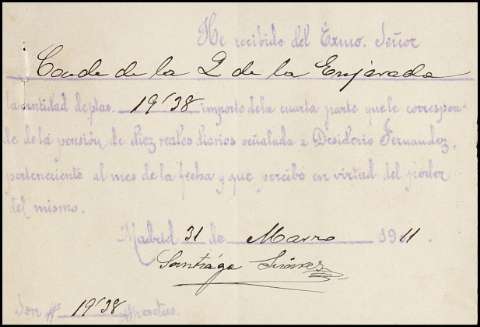 He recibido del Excmo. Señor
Conde de la Q de la Enjarada
la cantidad de ptas. 19'38 importe de la cuarta parte que le correspon-
de de la pensión de diez reales diarios señalada a Desiderio Fernandez,
perteneciente al mes de la fecha y que percibo en virtud del poder
del mismo.
Madrid 31 de Marzo 1911.
Santiago Suárez
Son 19'38